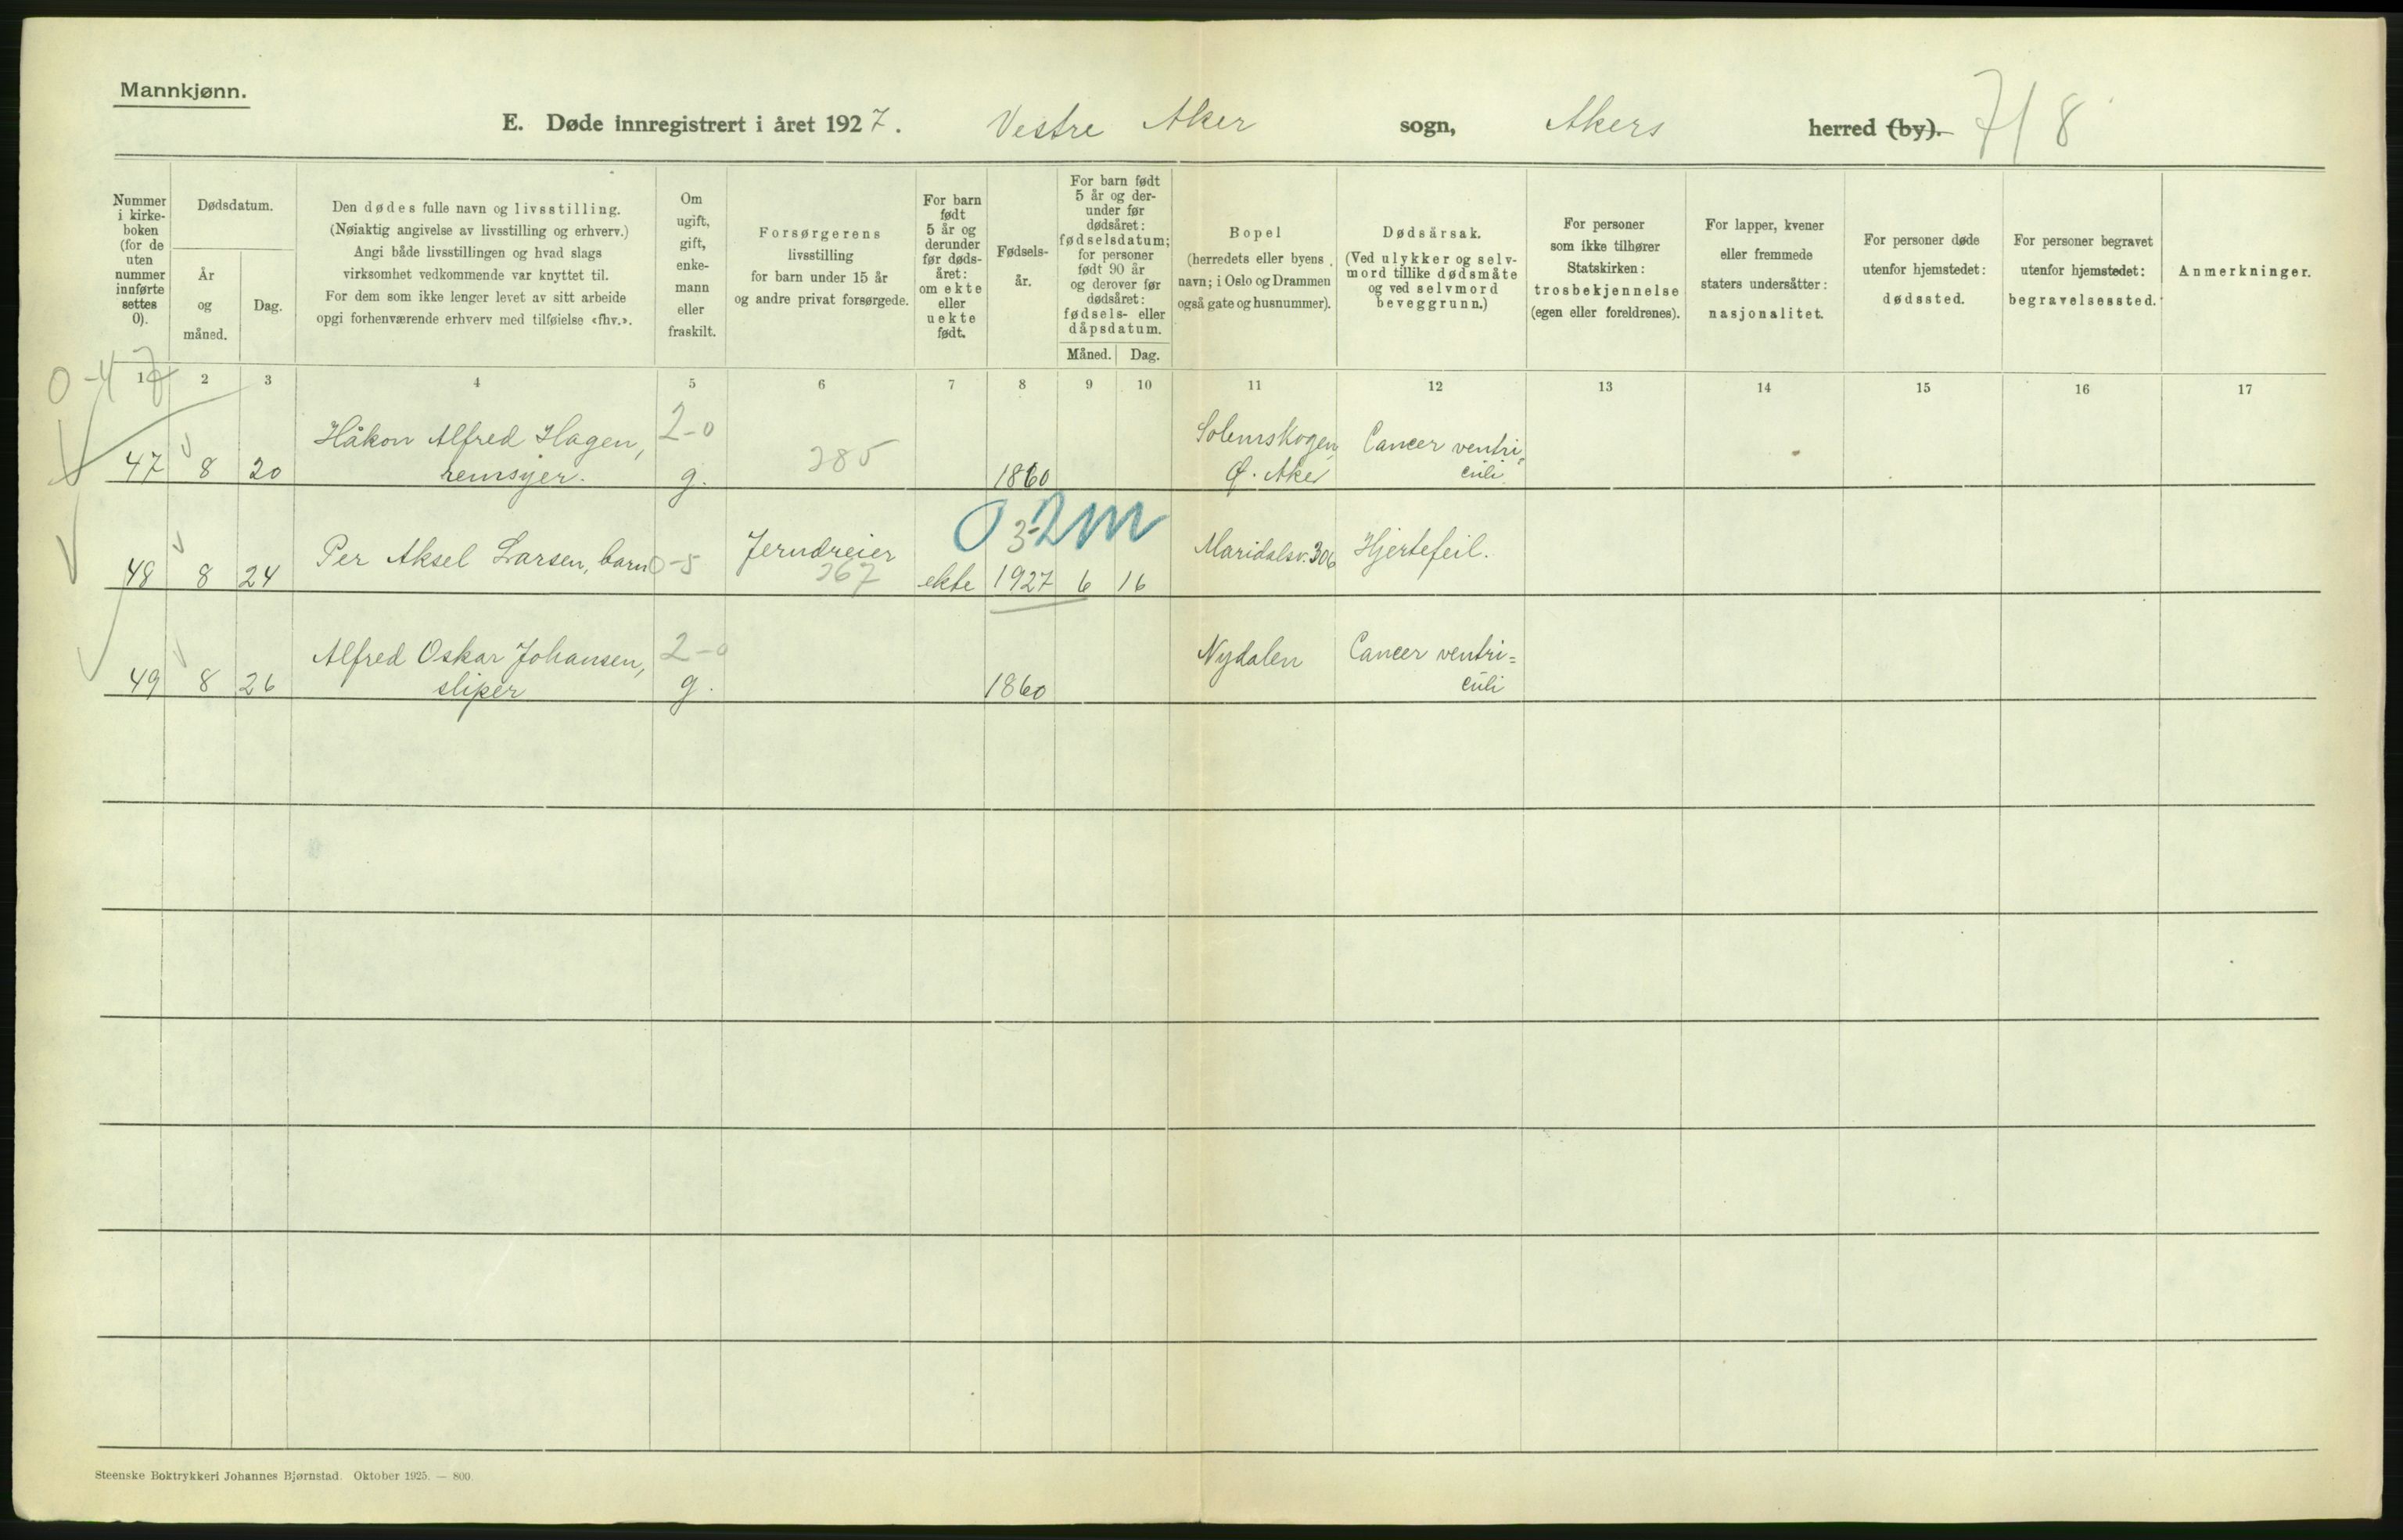 Mannkjønn.
E. Døde innregistrert i året 1927. Vestre Aker sogn, Akers herred (by). 7/8
Nummer i kirke-boken (for de uten nummer innførte settes 0).
Dødsdatum.
År og måned.
Dag.
Den dødes fulle navn og livsstilling.
(Nøiaktig angivelse av livsstilling og erhverv.)
Angi både livsstillingen og hvad slags
virksomhet vedkommende var knyttet til.
For dem som ikke lenger levet av sitt arbeide
opgi forhenværende erhverv med tilføielse «fhv.».
Om ugift, gift, enke-mann eller fraskilt.
Forsørgerens
livsstilling
for barn under 15 år
og andre privat forsørgede.
For barn født 5 år og derunder før døds-året: om ekte eller uekte født.
Fødsels-år.
For barn født 5 år og der-under før dødsåret: fødselsdatum; for personer født 90 år og derover før dødsåret: fødsels- eller dåpsdatum.
Måned. Dag.
Bopel
(herredets eller byens
navn; i Oslo og Drammen
også gate og husnummer).
Dødsårsak.
(Ved ulykker og selv-
mord tillike dødsmåte
og ved selvmord
beveggrunn.)
For personer
som ikke tilhører
Statskirken:
trosbekjennelse
(egen eller foreldrenes).
For lapper, kvener
eller fremmede
staters undersåtter:
nasjonalitet.
For personer døde
utenfor hjemstedet:
dødssted.
For personer begravet
utenfor hjemstedet:
begravelsessted.
Anmerkninger.
0-4 7
1 2 3 4 5 6 7 8 9 10 11 12 13 14 15 16 17
Håkon Alfred Hagen, 2-0 Solemskogen, Cancer ventri-
47 8 20 remsyer. g. 285 1860 Ø. Aker culi
0 3-2m
Per Aksel Larsen, barn 0-5 Jerndreier Maridalsv. 306 Hjertefeil.
48 8 24 267 ekte 1927 6 16
Alfred Oskar Johansen, 2-0 Nydalen Cancer ventri=
49 8 26 sliper g. 1860 culi
Steenske Boktrykkeri Johannes Bjørnstad. Oktober 1925. — 800.